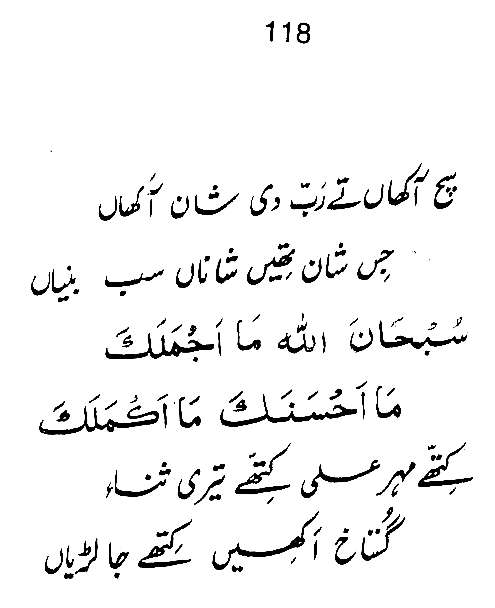 118
سچ آکھاں تے رَبّ دی شان آکھاں
جِس شان تھِیں شاناں سب بنیاں
سُبْحَانَ اللہ مَا اَجْمَلَكَ
مَا اَحْسَنَكَ مَا اَكْمَلَكَ
کِتھّے مہر علی کِتھّے تیری ثناء
گُستاخ اَکھِیں کِتھے جا لڑیاں